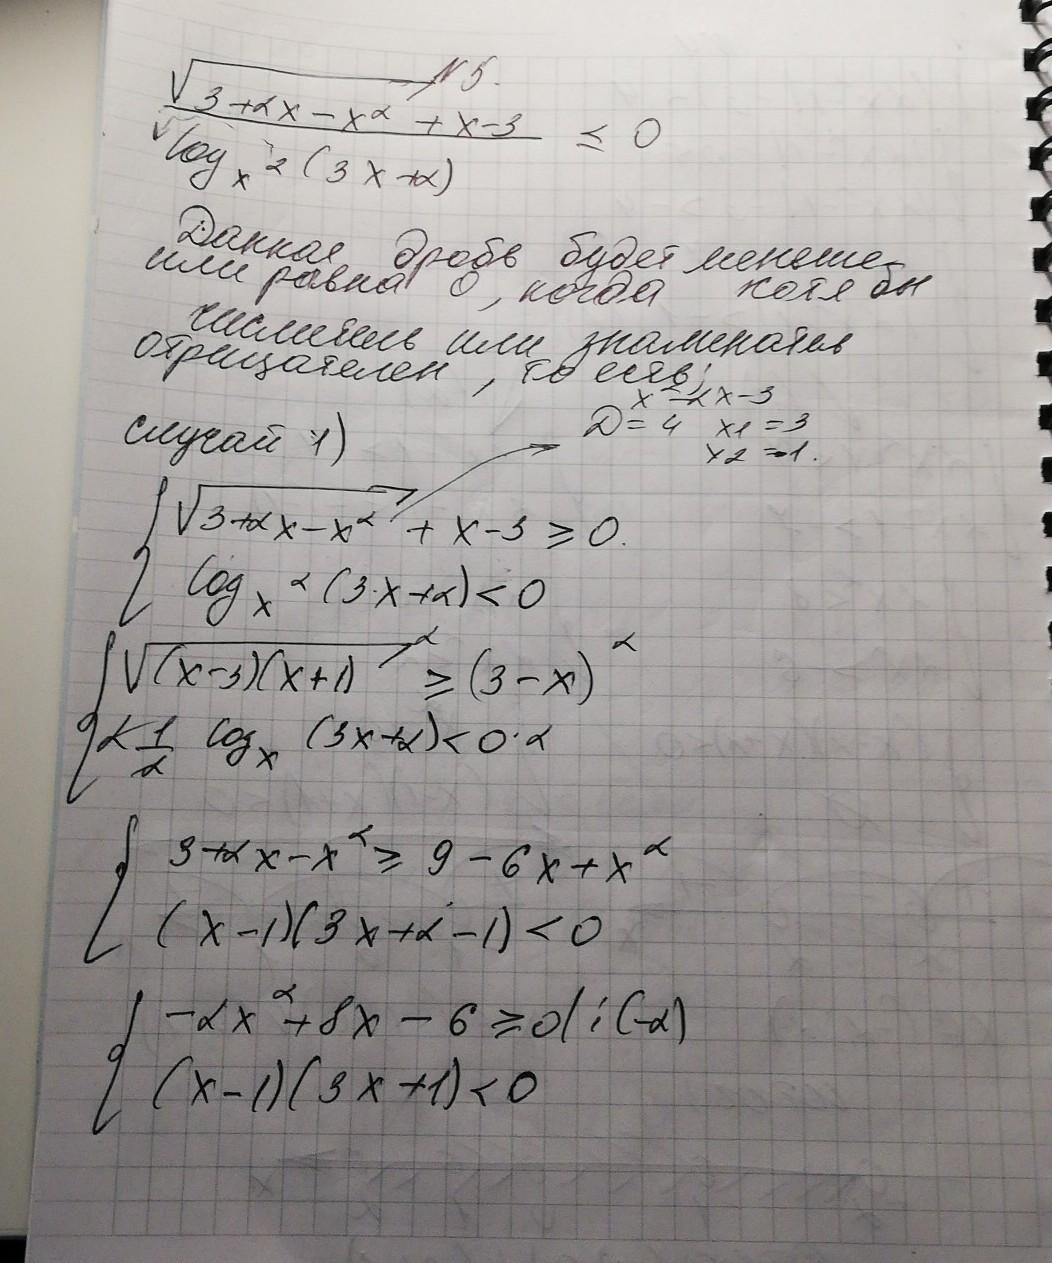 N 5.
√(3+2x-x²) + x-3 / log_x²(3x+2) ≤ 0
Данная дробь будет меньше
или равна 0, когда хотя бы
числитель или знаменатель
отрицателен, то есть:
x²-2x-3
D = 4 x1 = 3
x2 = -1.
случай 1)
√(3+2x-x²) + x-3 ≥ 0.
log_x²(3x+2) < 0
√((x-3)(x+1))² ≥ (3-x)²
1/2 log_x (3x+2) < 0·2
3+2x-x² ≥ 9-6x+x²
(x-1)(3x+2-1) < 0
-2x²+8x-6 ≥ 0 | :(-2)
(x-1)(3x+1) < 0